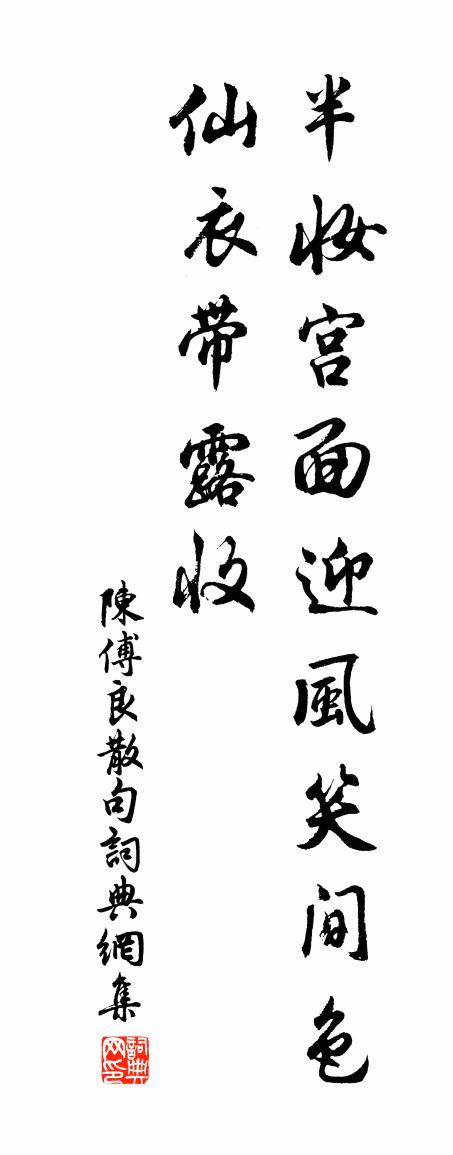 半妝宮面迎風笑間色
仙衣帶露收
陳傅良散句詞典網集
詞典网印